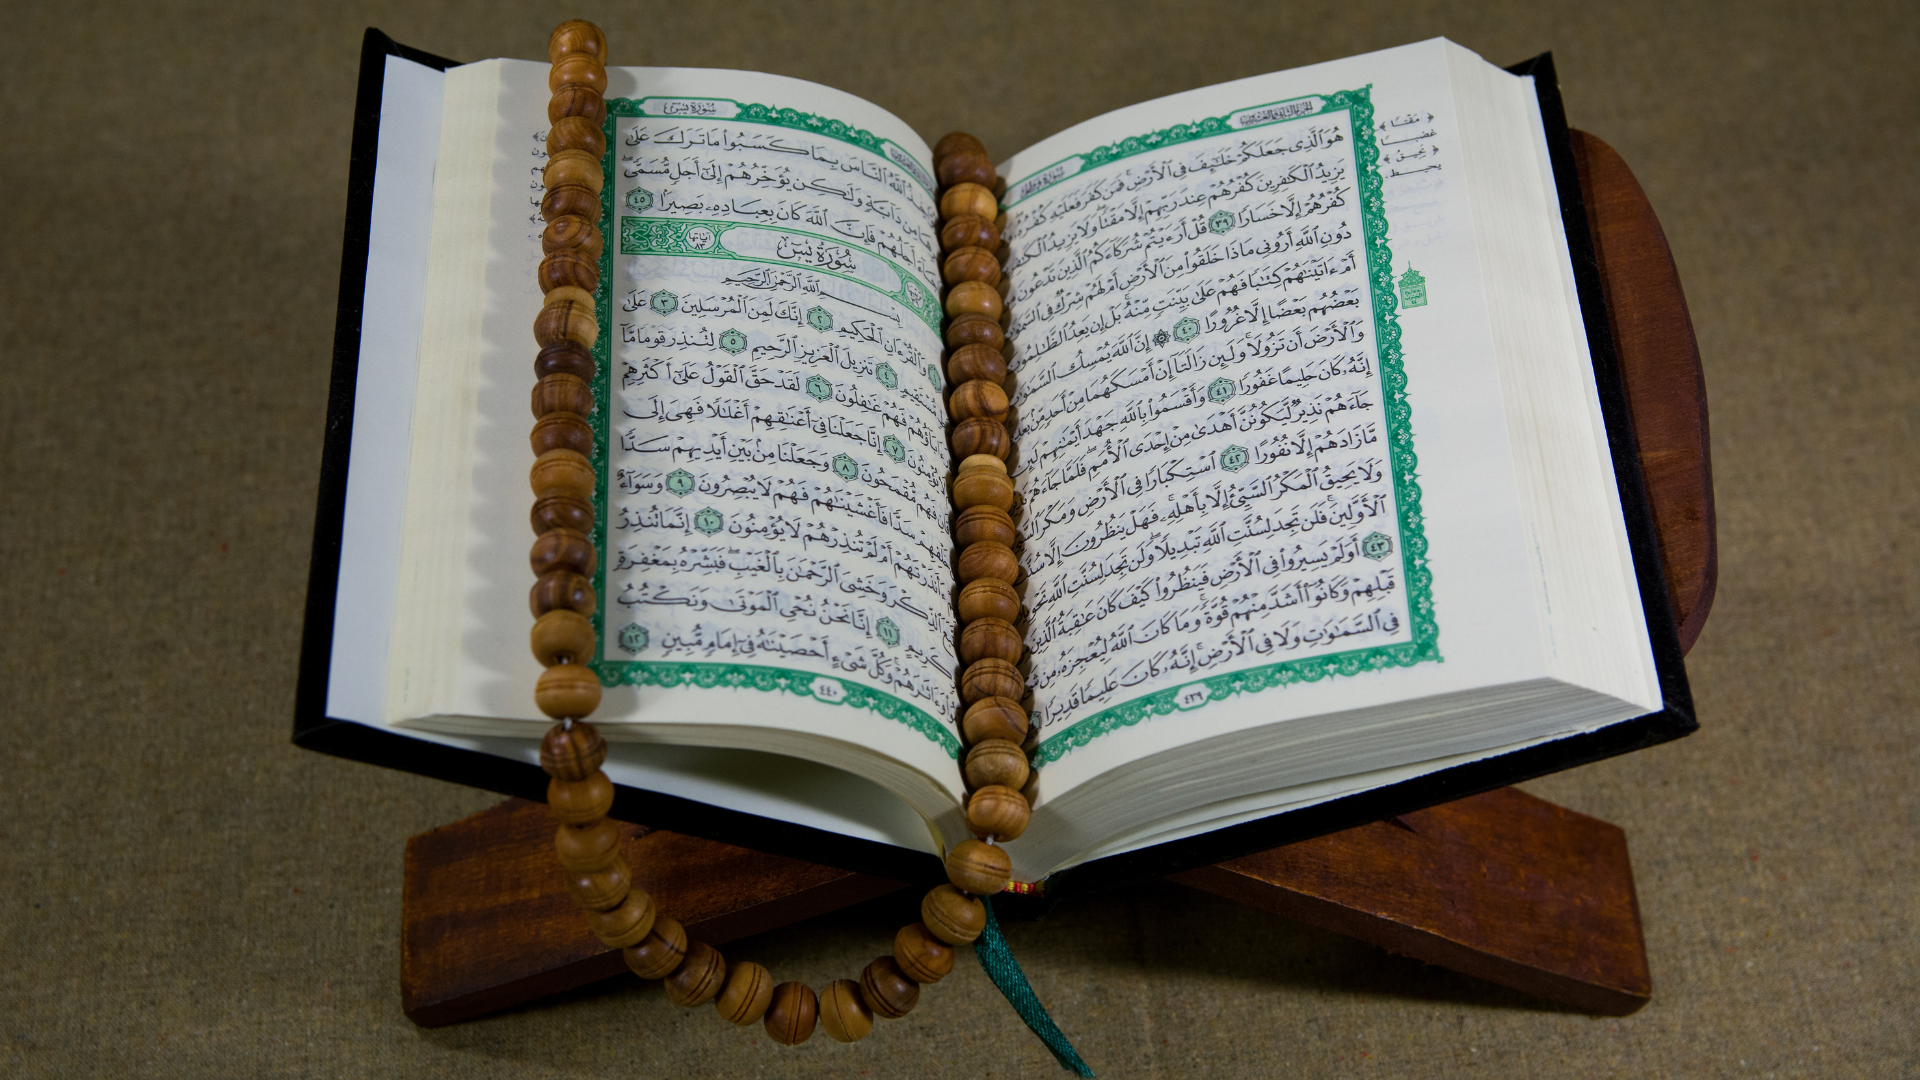 الجزء الثاني والعشرون
سُورَةُ فَاطِرٍ
هُوَ ٱلَّذِى جَعَلَكُمْ خَلَٰٓئِفَ فِى ٱلْأَرْضِ فَمَن كَفَرَ فَعَلَيْهِ كُفْرُهُۥ
يَزِيدُ ٱلْكَٰفِرِينَ كُفْرُهُمْ عِندَ رَبِّهِمْ إِلَّا مَقْتًا وَلَا يَزِيدُ ٱلْكَٰفِرِينَ
كُفْرُهُمْ إِلَّا خَسَارًا ٣٩ قُلْ أَرَءَيْتُمْ شُرَكَآءَكُمُ ٱلَّذِينَ تَدْعُونَ
دُونِ ٱللَّهِ أَرُونِى مَاذَا خَلَقُوا۟ مِنَ ٱلْأَرْضِ أَمْ لَهُمْ شِرْكٌ فِى ٱلسَّمَٰوَٰتِ
أَمْ ءَاتَيْنَٰهُمْ كِتَٰبًا فَهُمْ عَلَىٰ بَيِّنَتٍ مِّنْهُ بَلْ إِن يَعِدُ ٱلظَّٰلِمُونَ
بَعْضُهُم بَعْضًا إِلَّا غُرُورًا ٤٠ ۞ إِنَّ ٱللَّهَ يُمْسِكُ ٱلسَّمَٰوَٰتِ
وَٱلْأَرْضَ أَن تَزُولَا وَلَئِن زَالَتَآ إِنْ أَمْسَكَهُمَا مِنْ أَحَدٍ مِّنۢ بَعْدِهِۦٓ
إِنَّهُۥ كَانَ حَلِيمًا غَفُورًا ٤١ وَأَقْسَمُوا۟ بِٱللَّهِ جَهْدَ أَيْمَٰنِهِمْ لَئِن
جَآءَهُمْ نَذِيرٌ لَّيَكُونُنَّ أَهْدَىٰ مِنْ إِحْدَى ٱلْأُمَمِ فَلَمَّا جَآءَهُمْ
مَّا زَادَهُمْ إِلَّا نُفُورًا ٤٢ ٱسْتِكْبَارًا فِى ٱلْأَرْضِ وَمَكْرَ
وَلَا يَحِيقُ ٱلْمَكْرُ ٱلسَّيِّئُ إِلَّا بِأَهْلِهِۦ فَهَلْ يَنظُرُونَ إِلَّا
ٱلْأَوَّلِينَ فَلَن تَجِدَ لِسُنَّتِ ٱللَّهِ تَبْدِيلًا وَلَن تَجِدَ لِسُنَّتِ ٱللَّهِ تَحْوِيلًا
٤٣ أَوَلَمْ يَسِيرُوا۟ فِى ٱلْأَرْضِ فَيَنظُرُوا۟ كَيْفَ كَانَ عَٰقِبَةُ ٱلَّذِينَ
قَبْلِهِمْ وَكَانُوٓا۟ أَشَدَّ مِنْهُمْ قُوَّةً وَمَا كَانَ ٱللَّهُ لِيُعْجِزَهُۥ مِن
فِى ٱلسَّمَٰوَٰتِ وَلَا فِى ٱلْأَرْضِ إِنَّهُۥ كَانَ عَلِيمًا قَدِيرًا
٤٣٩
﴿ مَقْتًا ﴾
غضبا
﴿ يَحِيقُ ﴾
يحيط
سُورَةُ يسٓ
ٱللَّهُ ٱلنَّاسَ بِمَا كَسَبُوا۟ مَا تَرَكَ عَلَىٰ
مِن دَآبَّةٍ وَلَٰكِن يُؤَخِّرُهُمْ إِلَىٰٓ أَجَلٍ مُّسَمًّى
جَآءَ أَجَلُهُمْ فَإِنَّ ٱللَّهَ كَانَ بِعِبَادِهِۦ بَصِيرًا ٤٥
سُورَةُ يسٓ
آيَاتُهَا ٨٣
بِسْمِ ٱللَّهِ ٱلرَّحْمَٰنِ ٱلرَّحِيمِ
وَٱلْقُرْءَانِ ٱلْحَكِيمِ ٢ إِنَّكَ لَمِنَ ٱلْمُرْسَلِينَ ٣ عَلَىٰ
مُّسْتَقِيمٍ ٤ تَنزِيلَ ٱلْعَزِيزِ ٱلرَّحِيمِ ٥ لِتُنذِرَ قَوْمًا مَّآ
ءَابَآؤُهُمْ فَهُمْ غَٰفِلُونَ ٦ لَقَدْ حَقَّ ٱلْقَوْلُ عَلَىٰٓ أَكْثَرِهِمْ
يُؤْمِنُونَ ٧ إِنَّا جَعَلْنَا فِىٓ أَعْنَٰقِهِمْ أَغْلَٰلًا فَهِىَ إِلَى
ٱلْأَذْقَانِ فَهُم مُّقْمَحُونَ ٨ وَجَعَلْنَا مِنۢ بَيْنِ أَيْدِيهِمْ سَدًّا
خَلْفِهِمْ سَدًّا فَأَغْشَيْنَٰهُمْ فَهُمْ لَا يُبْصِرُونَ ٩ وَسَوَآءٌ
ءَأَنذَرْتَهُمْ أَمْ لَمْ تُنذِرْهُمْ لَا يُؤْمِنُونَ ١٠ إِنَّمَا تُنذِرُ
ٱلذِّكْرَ وَخَشِىَ ٱلرَّحْمَٰنَ بِٱلْغَيْبِ فَبَشِّرْهُ بِمَغْفِرَةٍ
كَرِيمٍ ١١ إِنَّا نَحْنُ نُحْىِ ٱلْمَوْتَىٰ وَنَكْتُبُ
وَءَاثَٰرَهُمْ وَكُلَّ شَىْءٍ أَحْصَيْنَٰهُ فِىٓ إِمَامٍ مُّبِينٍ ١٢
٤٤٠